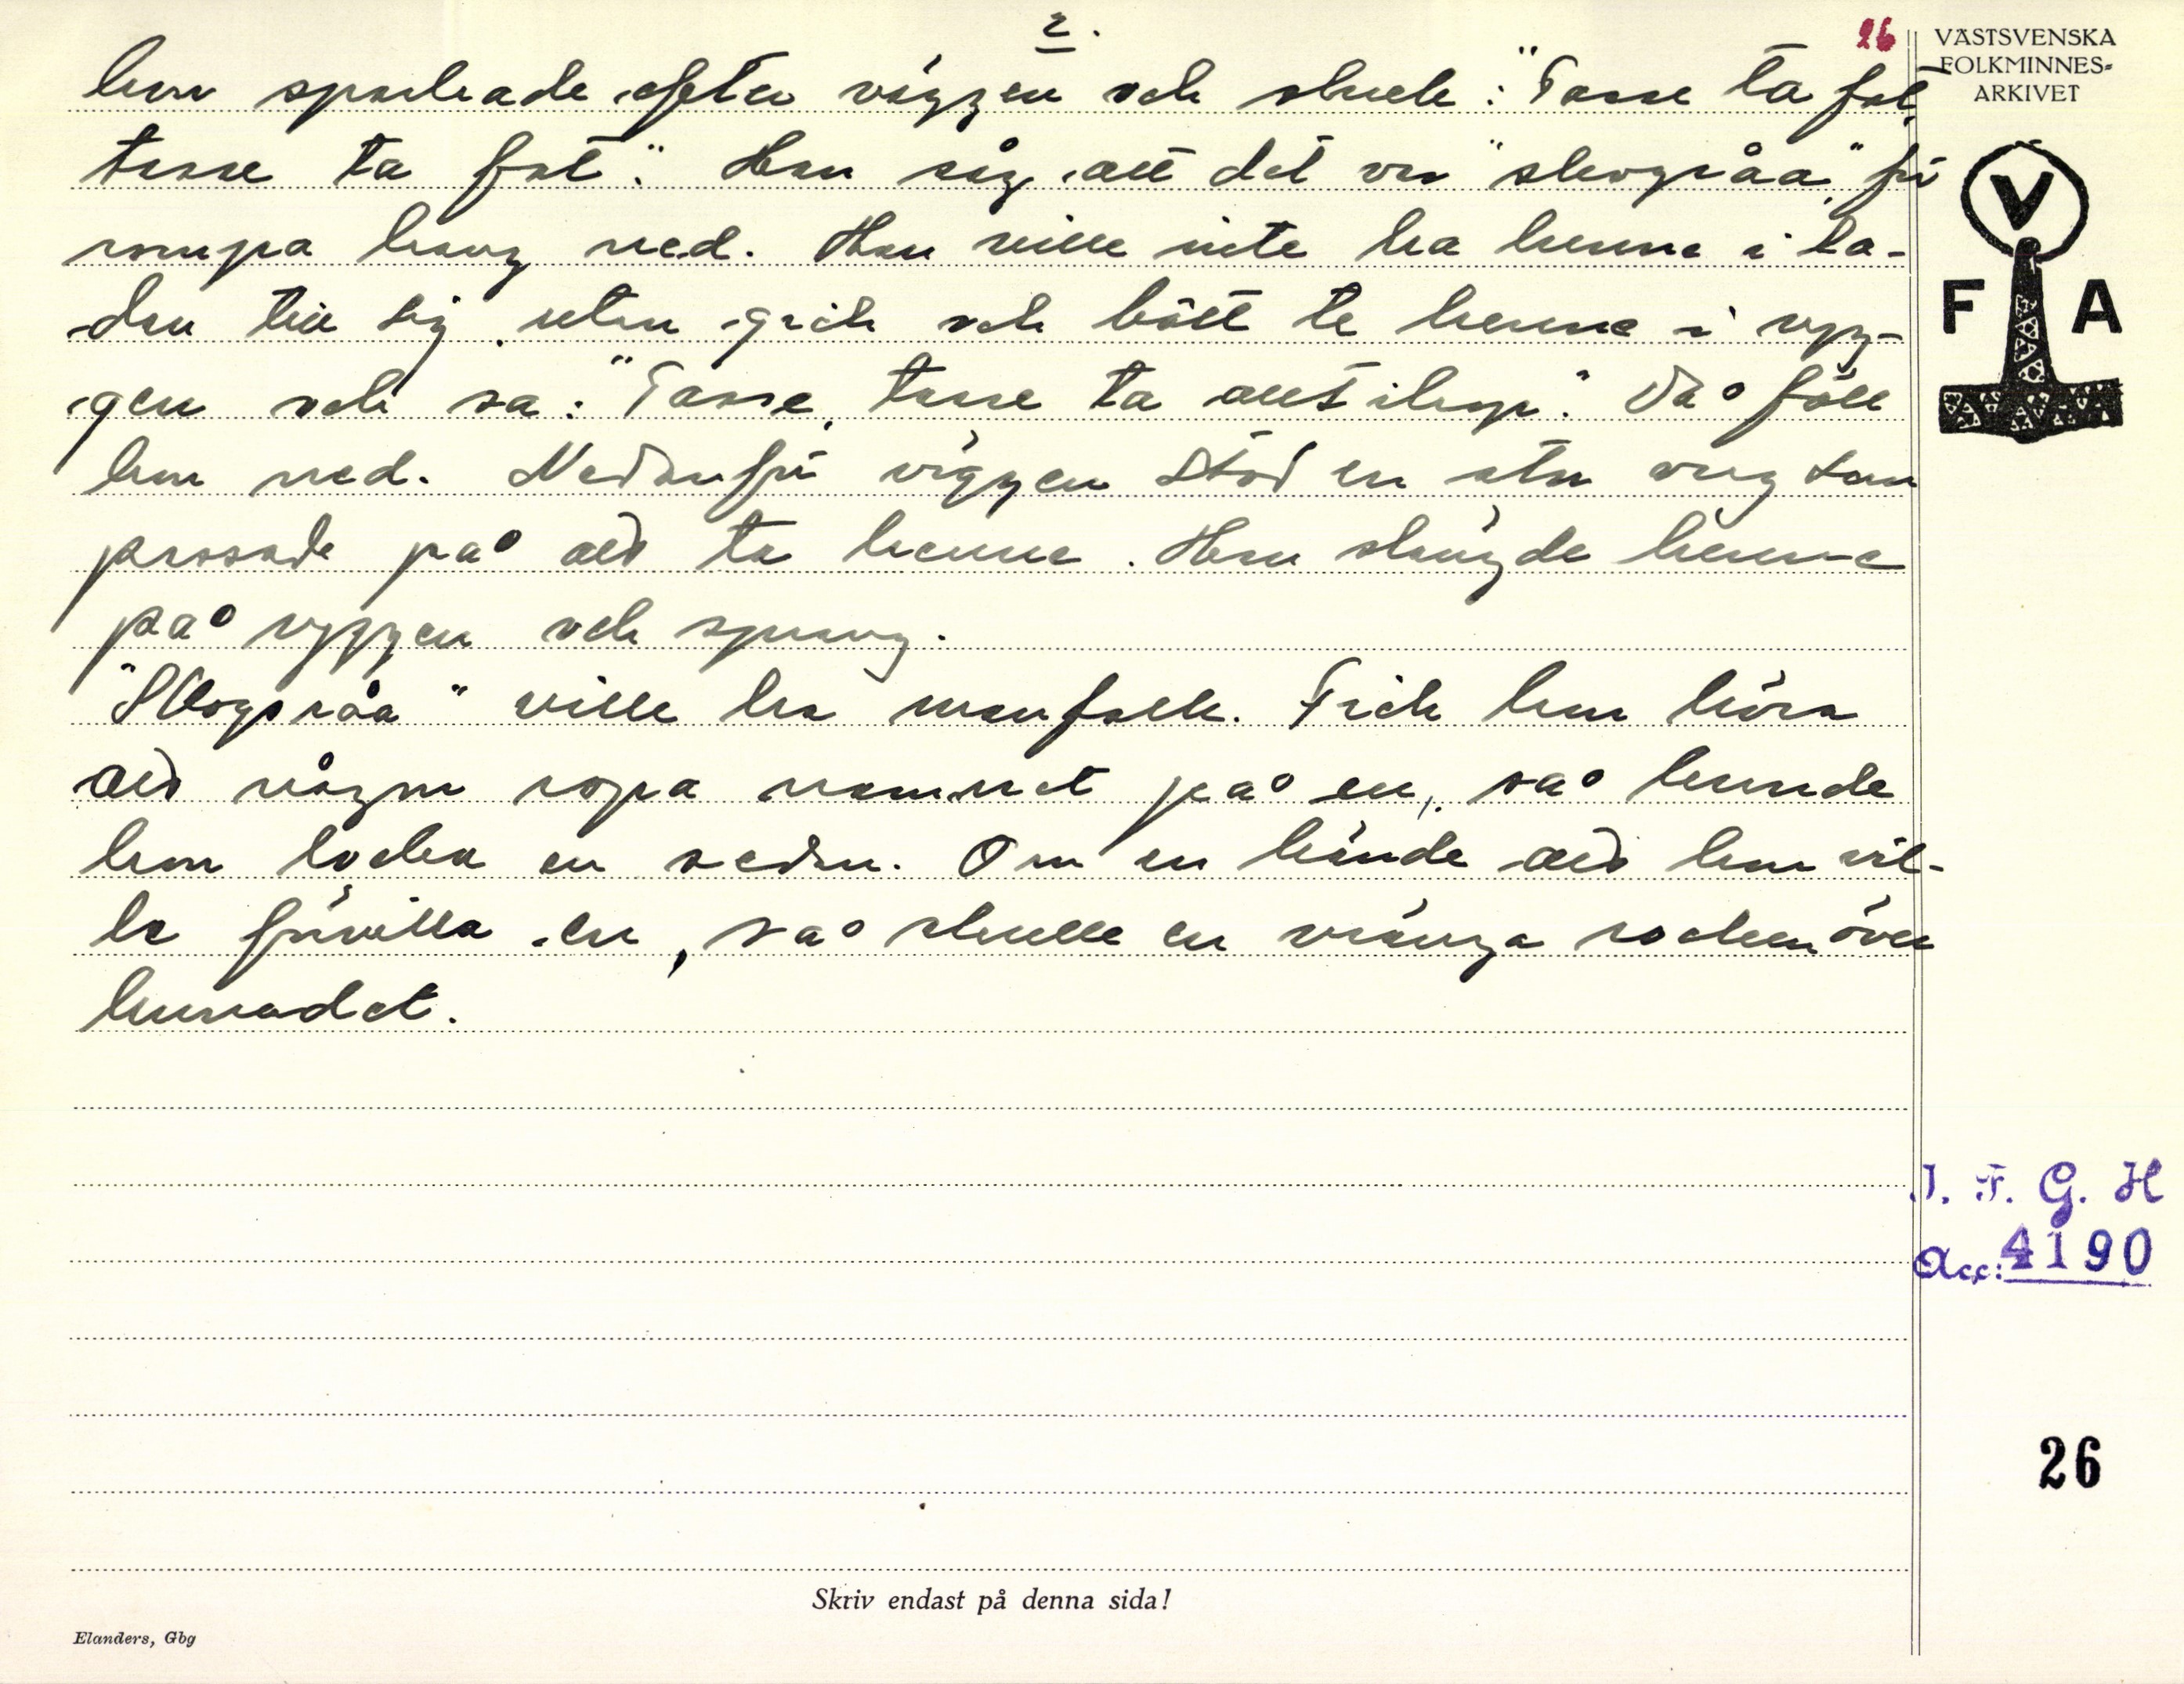 2.
26
hon sparkade efter väggen och skrek: "Tasse ta fot,
tasse ta fot". Han såg att det var "skogsråa", för
rumpa hang ned. Han ville inte ha henne i la-
dan till sig, utan gick och höll te henne i ryg-
gen och sa: "Tasse, tasse ta allt ihop". Då föll
hon ned. Nedanför väggen stod en stor varg som
passade på att ta henne. Han slängde henne
på ryggen och sprang.
"Skogsråa" ville ha manfolk. Fick hon höra
att någon ropa namnet på en, så kunde
hon locka en sedan. Om en kände att hon vil-
le förvilla en, så skulle en vränga rocken över
huvudet.
VÄSTSVENSKA
FOLKMINNES-
ARKIVET
V
F A
I. F. G. H
Acc: 4190
26
Skriv endast på denna sida!
Elanders, Gbg